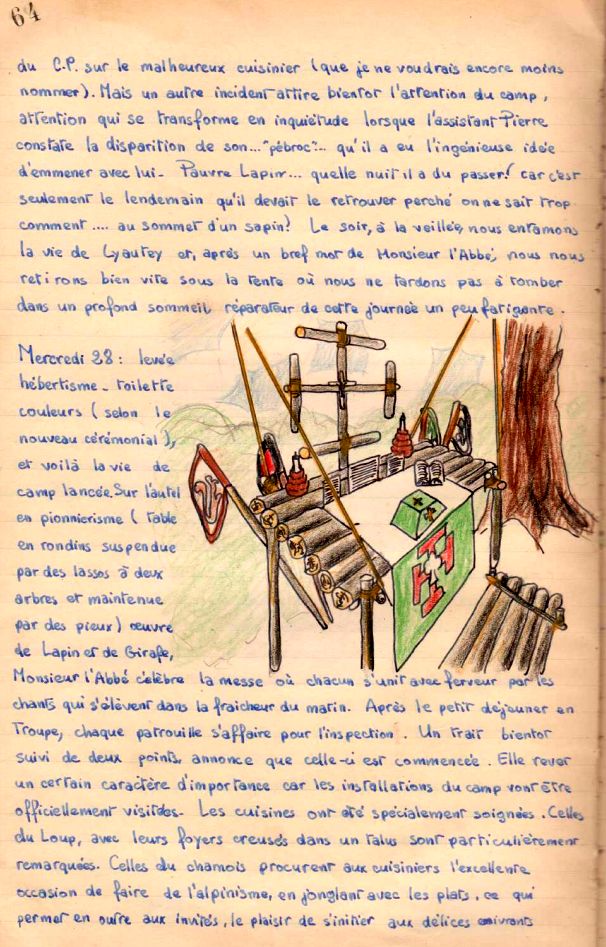 64
du C.P. sur le malheureux cuisinier (que je ne voudrais encore moins
nommer). Mais un autre incident attire bientot l'attention du camp,
attention qui se transforme en inquiétude lorsque l'assistant Pierre
constate la disparition de son..."pébroc"... qu'il a eu l'ingénieuse idée
d'emmener avec lui. Pauvre Lapin... quelle nuit il a du passer! car c'est
seulement le lendemain qu'il devait le retrouver perché on ne sait trop
comment .... au sommet d'un sapin! Le soir, à la veillée, nous entamons
la vie de Lyautey et, après un bref mot de Monsieur l'Abbé, nous nous
retirons bien vite sous la tente où nous ne tardons pas à tomber
dans un profond sommeil réparateur de cette journée un peu fatigante.
Mercredi 28: levée
hébertisme - toilette
couleurs (selon le
nouveau cérémonial),
et voilà la vie de
camp lancée. Sur l'autel
en pionniérisme (table
en rondins suspendue
par des lassos à deux
arbres et maintenue
par des pieux) œuvre
de Lapin et de Girafe,
Monsieur l'Abbé célèbre la messe où chacun s'unit avec ferveur par les
chants qui s'élèvent dans la fraicheur du matin. Après le petit déjeuner en
Troupe, chaque patrouille s'affaire pour l'inspection. Un trait bientot
suivi de deux points, annonce que celle-ci est commencée. Elle revet
un certain caractère d'importance car les installations du camp vont être
officiellement visitées. Les cuisines ont été spécialement soignées. Celles
du Loup, avec leurs foyers creusés dans un talus sont particulièrement
remarquées. Celles du chamois procurent aux cuisiniers l'excellente
occasion de faire de l'alpinisme, en jonglant avec les plats, ce qui
permet en outre aux invités, le plaisir de s'initier aux délices enivrants